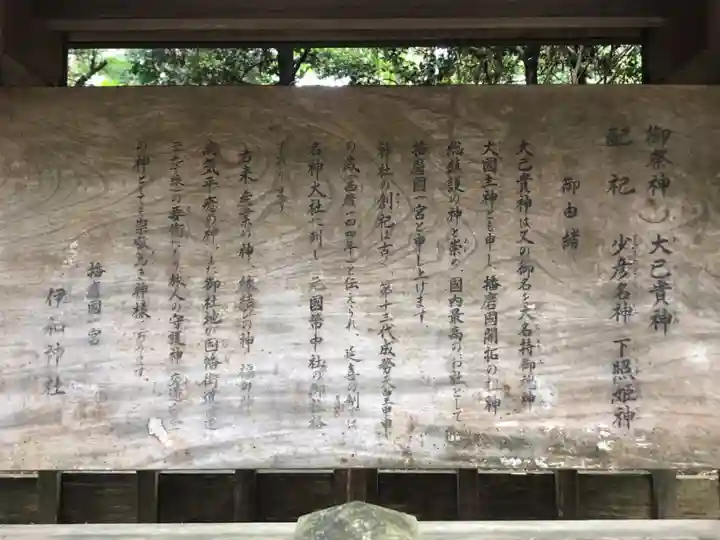 御祭神 大己貴神
配祀 少彦名神 下照姫神
御由緒
大己貴神は又の御名を大名持御魂神
大國主神とも申し播磨國開拓の神
総鎮護の神と崇め國内最高のお社として
播磨國一宮と申し上げます。
神社の創祀は古く、第十三代成務天皇甲申
の歳(西暦一四四年)と伝えられ、延喜の制には
名神大社に列し 元國幣中社の
古来 産業の神、縁結びの神 福の神
病気平癒の神、また御社地の因幡街道
の要衝により旅人の守護神 交通
の神としても崇敬高き神様であります。
播磨國一宮
伊和神社